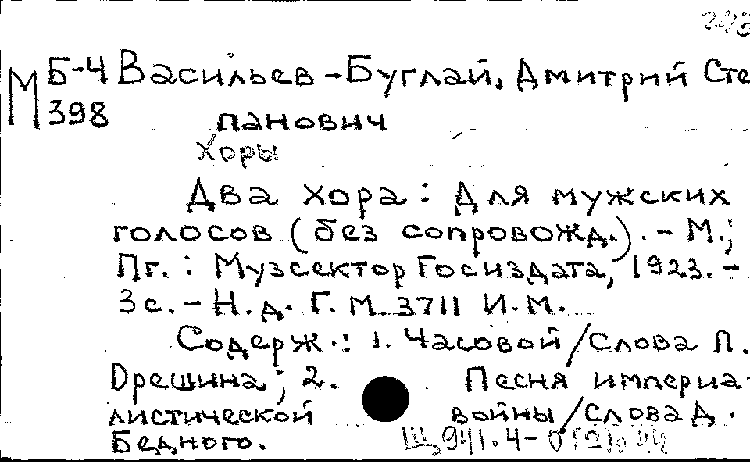 М Б-4 Васильев-Буглай, Дмитрий Сте
398 панович
Хоры
Два хора : Для мужских
голосов (без сопровожд.). - М.;
Пг. : Музсектор Госиздата, 1923. -
3 с. - Н.д. Г.М. 3711 И.М.
Содерж.: 1. Часовой / Слова П.
Орешина; 2. Песня империа-
листической войны / Слова Д.
Бедного. Щ941.4-